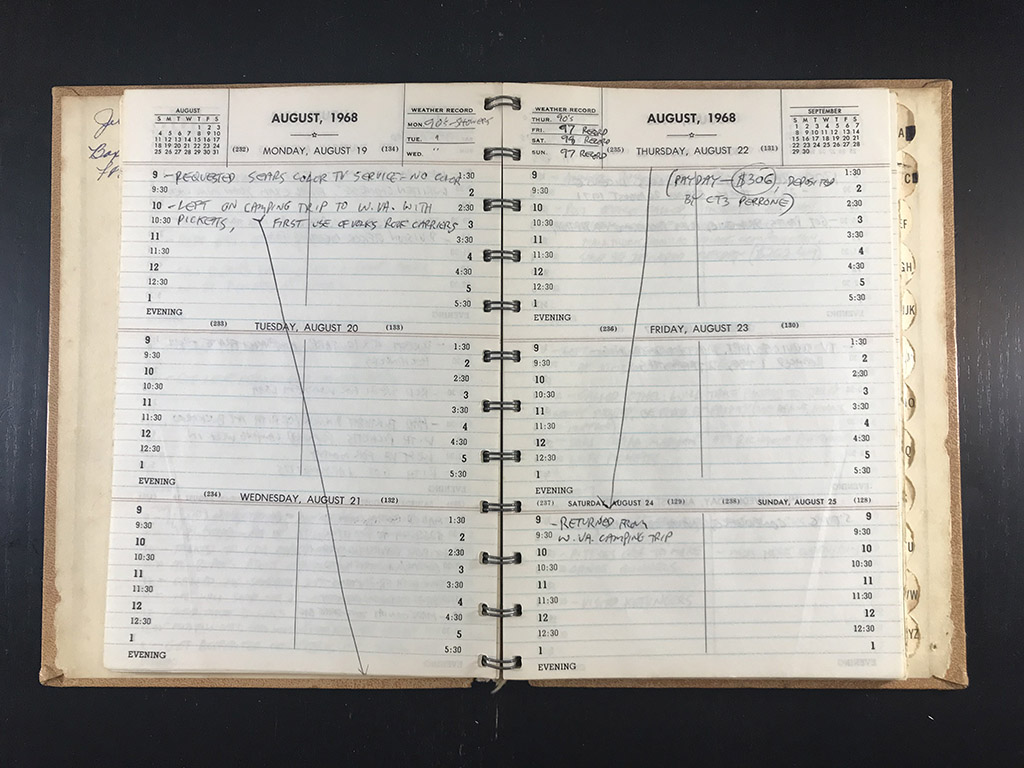 AUGUST
S M T W T F S
1 2 3
4 5 6 7 8 9 10
11 12 13 14 15 16 17
18 19 20 21 22 23 24
25 26 27 28 29 30 31
AUGUST, 1968
WEATHER RECORD
MON. 90'S - SHOWERS
TUE. "
WED. "
(232) MONDAY, AUGUST 19 (134)
9 - REQUESTED SEARS COLOR TV SERVICE - NO COLOR 1:30
9:30 2
10 - LEFT ON CAMPING TRIP TO W.VA. WITH 2:30
10:30 PICKETTS, FIRST USE OF ROOF CARRIERS 3
11 3:30
11:30 4
12 4:30
12:30 5
1 5:30
EVENING
(233) TUESDAY, AUGUST 20 (133)
9 1:30
9:30 2
10 2:30
10:30 3
11 3:30
11:30 4
12 4:30
12:30 5
1 5:30
EVENING
(234) WEDNESDAY, AUGUST 21 (132)
9 1:30
9:30 2
10 2:30
10:30 3
11 3:30
11:30 4
12 4:30
12:30 5
1 5:30
EVENING
WEATHER RECORD
THUR. 90'S
FRI. 97 RECORD
SAT. 98 RECORD
SUN. 97 RECORD
AUGUST, 1968
SEPTEMBER
S M T W T F S
1 2 3 4 5 6 7
8 9 10 11 12 13 14
15 16 17 18 19 20 21
22 23 24 25 26 27 28
29 30
(235) THURSDAY, AUGUST 22 (131)
9 (PAYDAY - $306, DEPOSITED 1:30
9:30 BY CT3 PERRONE) 2
10 2:30
10:30 3
11 3:30
11:30 4
12 4:30
12:30 5
1 5:30
EVENING
(236) FRIDAY, AUGUST 23 (130)
9 1:30
9:30 2
10 2:30
10:30 3
11 3:30
11:30 4
12 4:30
12:30 5
1 5:30
EVENING
(237) SATURDAY, AUGUST 24 (129) (238) SUNDAY, AUGUST 25 (128)
9 - RETURNED FROM 9
9:30 W.VA. CAMPING TRIP 9:30
10 10
10:30 10:30
11 11
11:30 11:30
12 12
12:30 12:30
1 1
EVENING
A
C
EF
GH
IJK